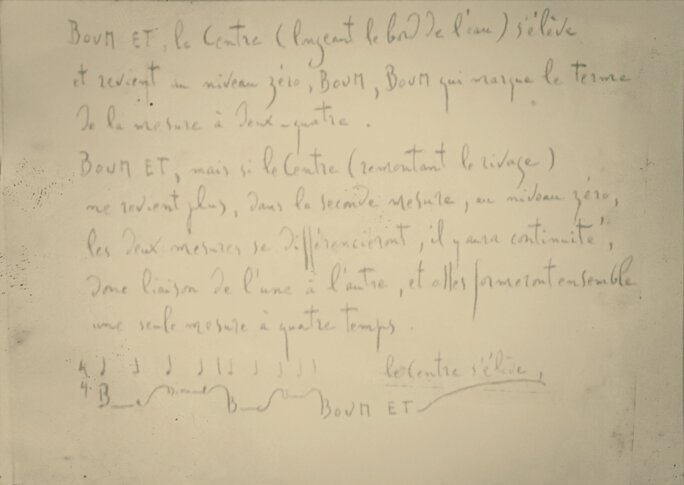 BOUM ET, le Centre (longeant le bord de l'eau) s'élève
et revient au niveau zéro, BOUM, BOUM qui marque le terme
de la mesure à deux-quatre.
BOUM ET, mais si le Centre (remontant le rivage)
ne revient plus, dans la seconde mesure, au niveau zéro,
les deux mesures se différencieront, il y aura continuité,
donc liaison de l'une à l'autre, et elles formeront ensemble
une seule mesure à quatre temps.
le Centre s'élève,
4
4 B B BOUM ET